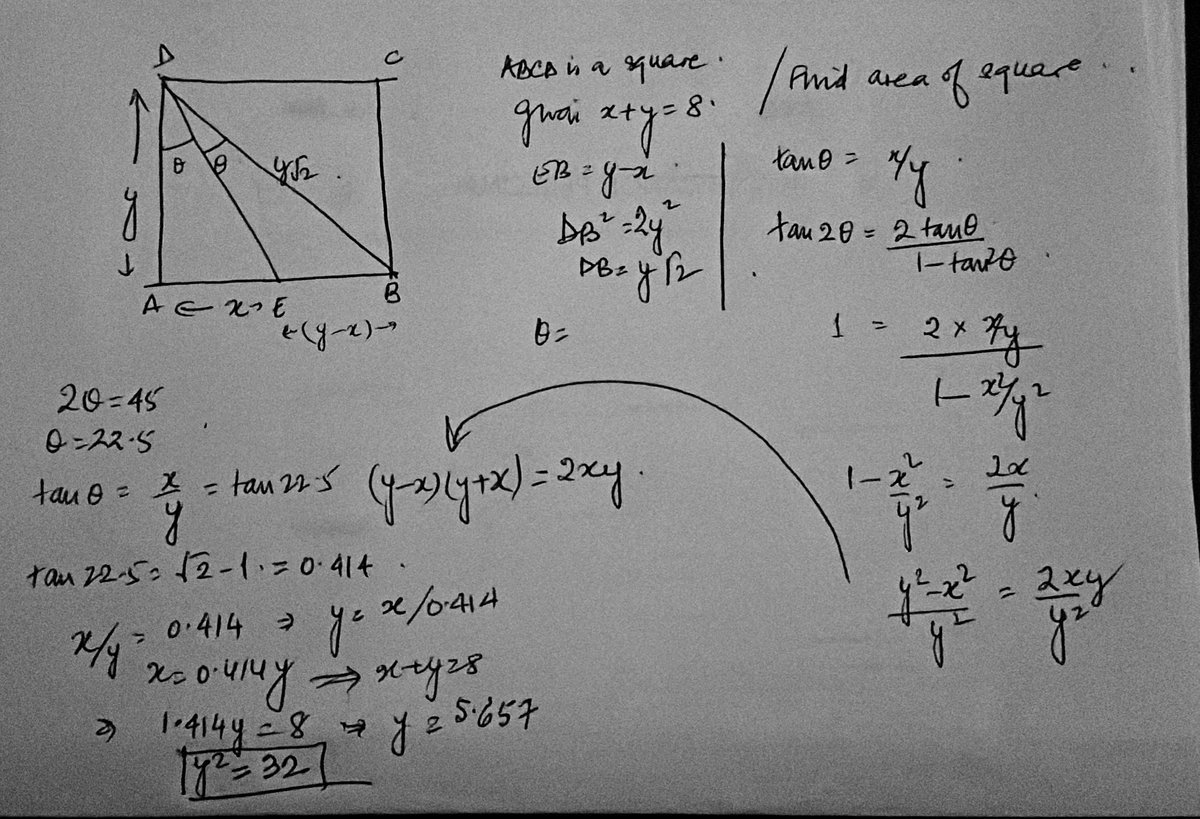 D
C
θ θ
y√2
y
A ← x → E
B
←(y-x)→
ABCD is a square.
x+y=8.
EB = y-x
DB² = 2y²
DB = y√2
θ=
/ Find area of square..
tanθ = x/y.
tan2θ = 2tanθ / 1-tan²θ
1 = 2 × x/y / 1 - x²/y²
1 - x²/y² = 2x/y.
y²-x²/y² = 2xy/y²
(y-x)(y+x) = 2xy.
2θ=45
θ=22.5
tanθ = x/y = tan 22.5
tan 22.5 = √2-1. = 0.414.
x/y = 0.414 ⇒ y = x/0.414
x=0.414y ⟹ x+y=8
⇒ 1.414y = 8 ⇒ y = 5.657
y² = 32